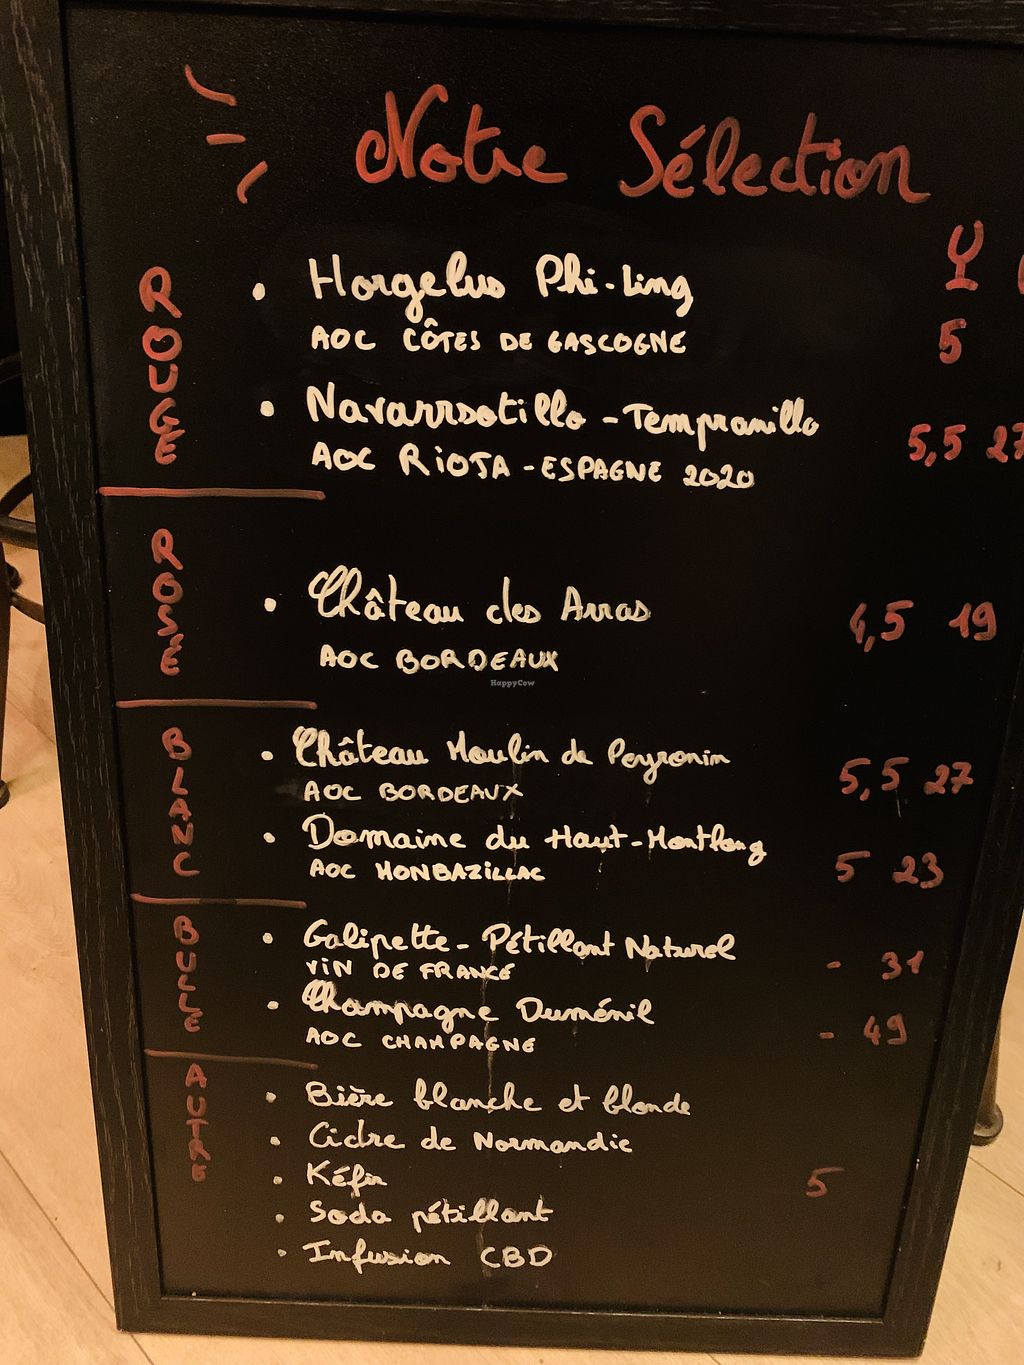 Notre Sélection
ROUGE
• Horgelus Phi-Ling
AOC CÔTES DE GASCOGNE 5
• Navarrsotillo - Tempranillo
AOC RIOJA - ESPAGNE 2020 5,5 27
ROSÉE
• Château des Arras 4,5 19
AOC BORDEAUX
HappyCow
BLANC
• Château Moulin de Peyronin 5,5 27
AOC BORDEAUX
• Domaine du Haut-Montlong
AOC MONBAZILLAC 5 23
BULLE
• Galipette - Pétillant Naturel - 31
VIN DE FRANCE
• Champagne Duménil - 49
AOC CHAMPAGNE
AUTRE
• Bière blanche et blonde
• Cidre de Normandie
• Kéfir 5
• Soda pétillant
• Infusion CBD